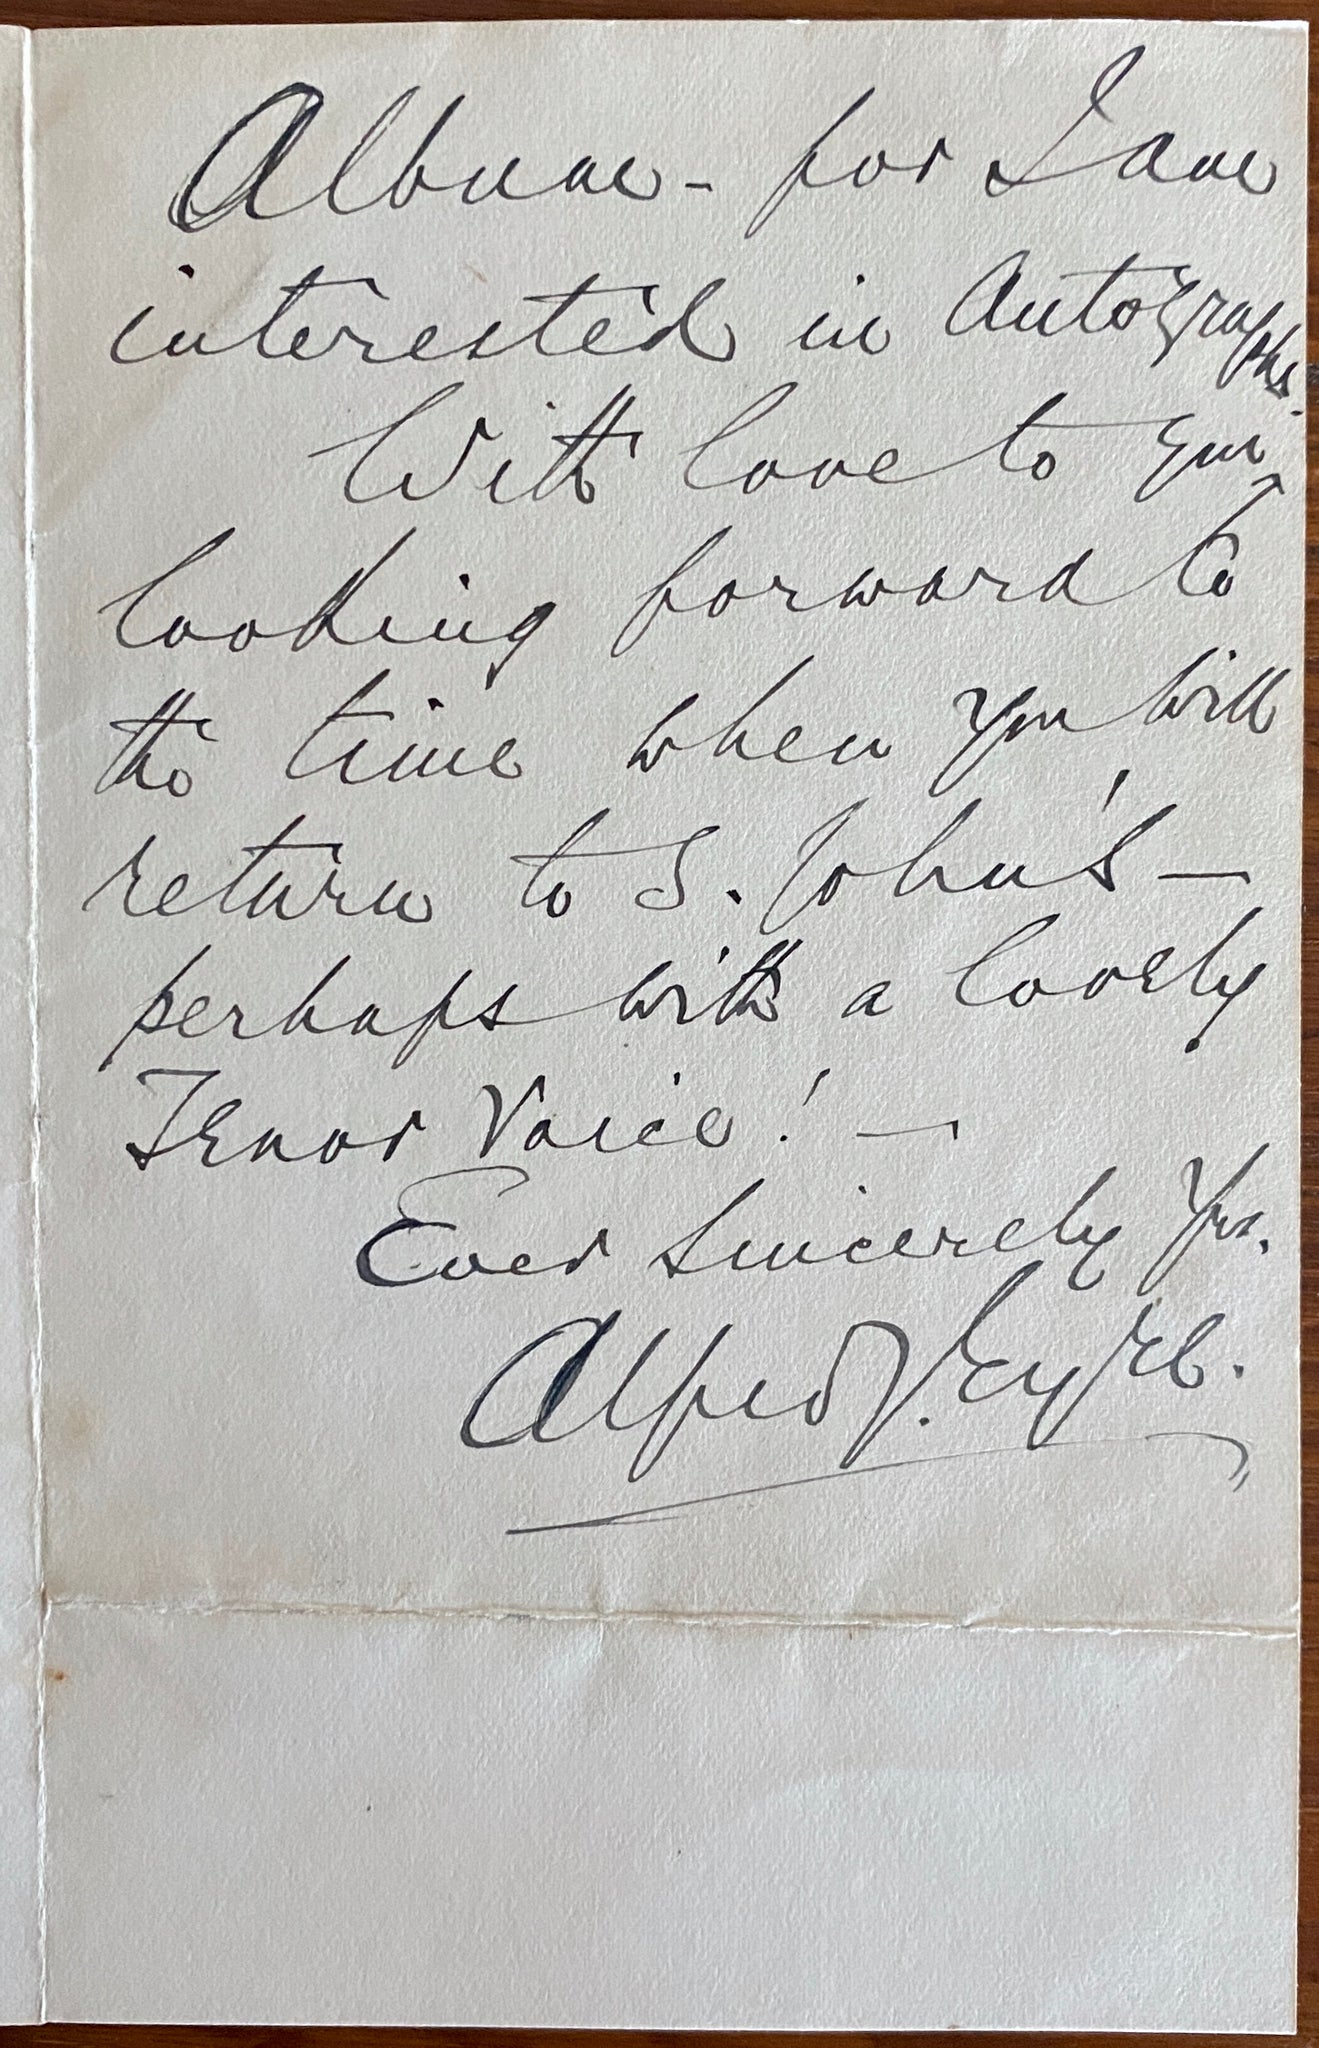 Album - for I am
interested in Autographs.
With love to you,
looking forward to
the time when you will
return to S. John's —
perhaps with a lovely
Tenor Voice! —
Ever sincerely yrs.
Alfred J. Eyre.